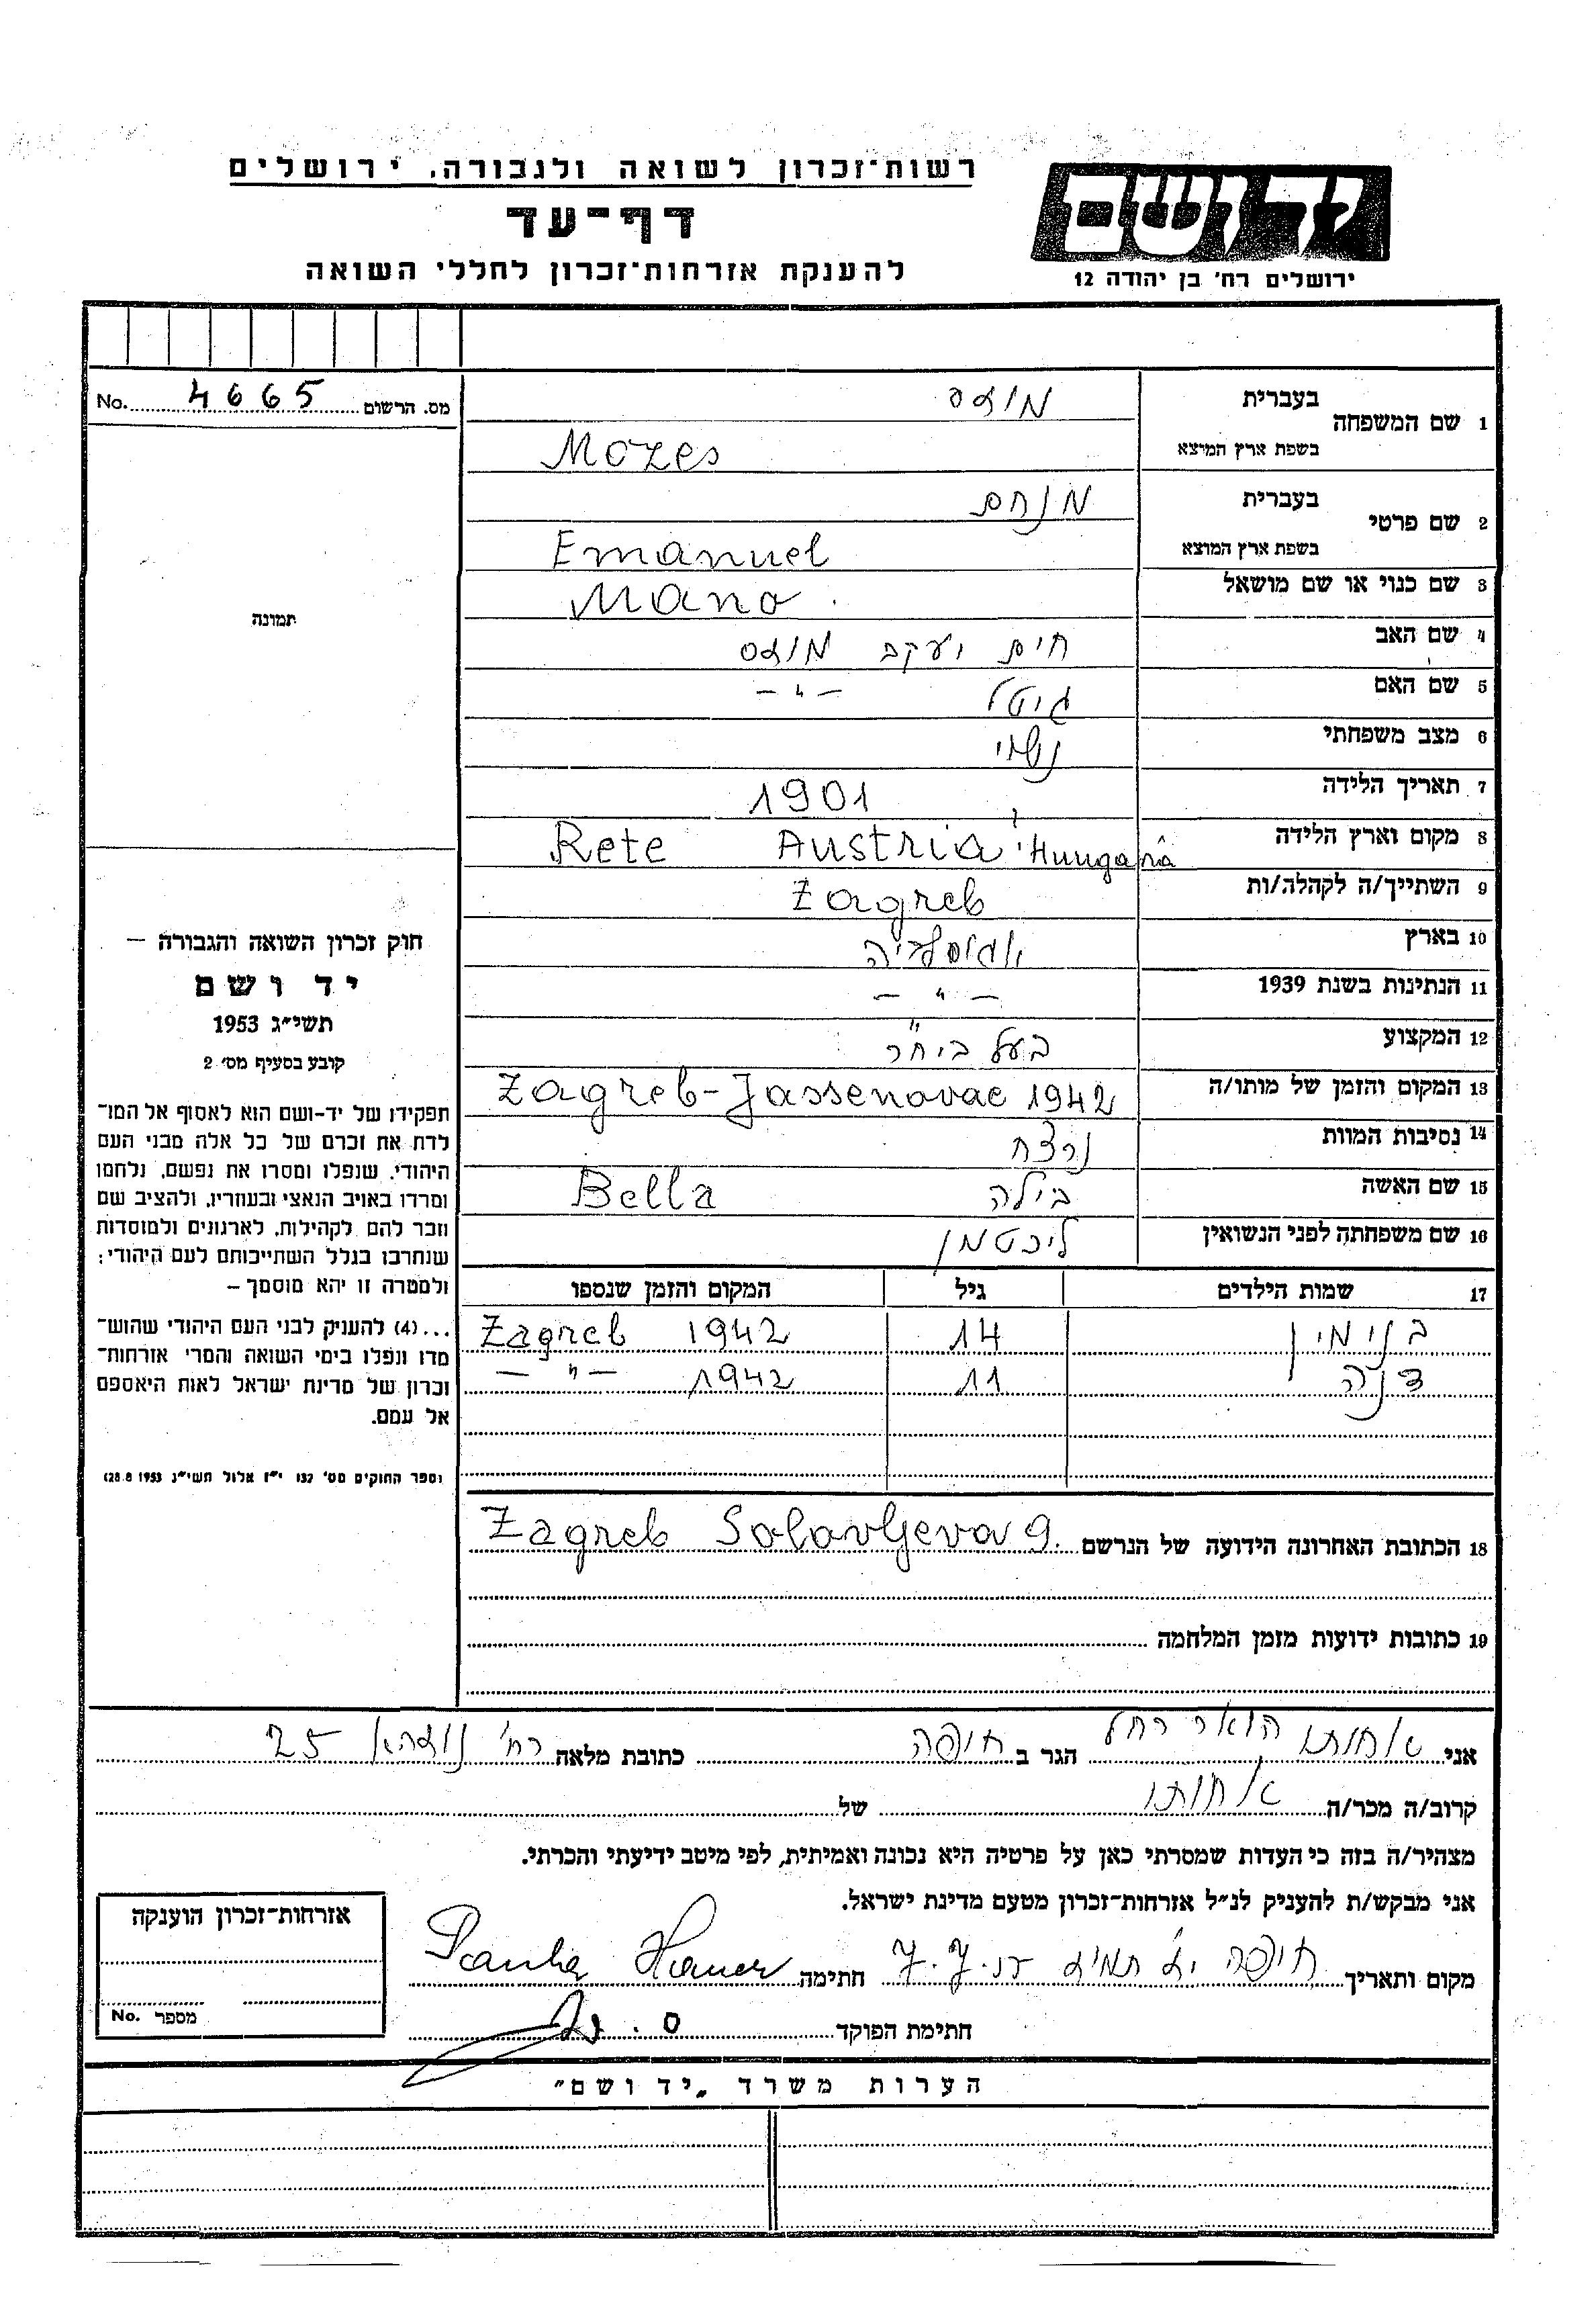 רשות־זכרון לשואה ולגבורה, ירושלים
דף־עד
להענקת אזרחות־זכרון לחללי השואה
יד ושם
ירושלים רח' בן יהודה 12
מס. הרשום 4665 No.
תמונה
חוק זכרון השואה והגבורה —
יד ושם
תשי״ג 1953
קובע בסעיף מס׳ 2
תפקידו של יד־ושם הוא לאסוף אל המו־
לדת את זכרם של כל אלה מבני העם
היהודי, שנפלו ומסרו את נפשם, נלחמו
ומרדו באויב הנאצי ובעוזריו, ולהציב שם
וזכר להם לקהילות, לארגונים ולמוסדות
שנחרבו בגלל השתייכותם לעם היהודי;
ולמטרה זו יהא מוסמך –
...(4) להעניק לבני העם היהודי שהוש־
מדו ונפלו בימי השואה והמרי אזרחות־
זכרון של מדינת ישראל לאות היאספם
אל עמם.
(ספר החוקים מס׳ 132 י״ז אלול תשי״ג 28.8.1953)
1 שם המשפחה בעברית מוזס
בשפת ארץ המוצא Mozes
2 שם פרטי בעברית מנחם
בשפת ארץ המוצא Emanuel
3 שם כנוי או שם מושאל Mano.
4 שם האב חיים יעקב מוזס
5 שם האם גיטל – " –
6 מצב משפחתי נשוי
7 תאריך הלידה 1901
8 מקום וארץ הלידה Rete Austria Hungaria
9 השתייך/ה לקהלה/ות Zagreb
10 בארץ יוגוסלביה
11 הנתינות בשנת 1939 – " –
12 המקצוע בעל ביח״ר
13 המקום והזמן של מותו/ה Zagreb-Jassenovac 1942
14 נסיבות המוות נרצח
15 שם האשה בילה Bella
16 שם משפחתה לפני הנשואין ליכטמן
17 שמות הילדים גיל המקום והזמן שנספו
בנימין 14 Zagreb 1942
דינה 11 – " – 1942
18 הכתובת האחרונה הידועה של הנרשם Zagreb Solovljeva 9.
19 כתובות ידועות מזמן המלחמה
אני אחותו הואר רחל הגר ב חיפה כתובת מלאה רח' נורדאו 25
קרוב/ה מכר/ה אחותו של
מצהיר/ה בזה כי העדות שמסרתי כאן על פרטיה היא נכונה ואמיתית, לפי מיטב ידיעתי והכרתי.
אני מבקש/ת להעניק לנ״ל אזרחות־זכרון מטעם מדינת ישראל.
מקום ותאריך חיפה חתימה
חתימת הפוקד
אזרחות־זכרון הוענקה
מספר No.
הערות משרד „יד ושם״